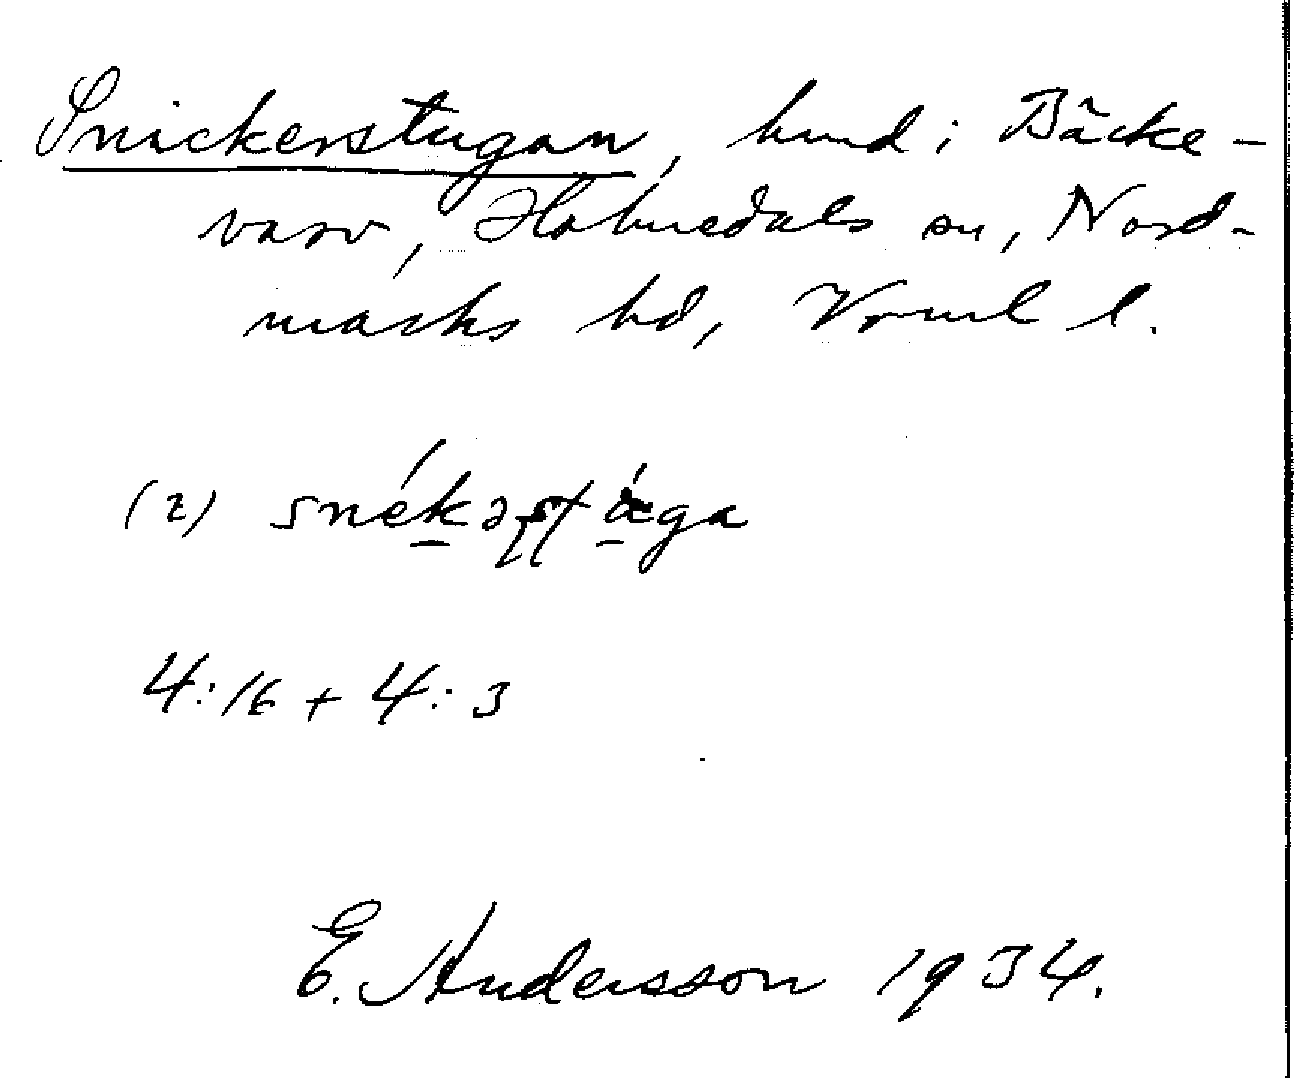 Snickerstugan, hmd i Bäcke-
varv, Holmedals sn, Nord-
marks hd, Vrml l.
(2) snék
4:16 + 4:3
E. Andersson 1934.